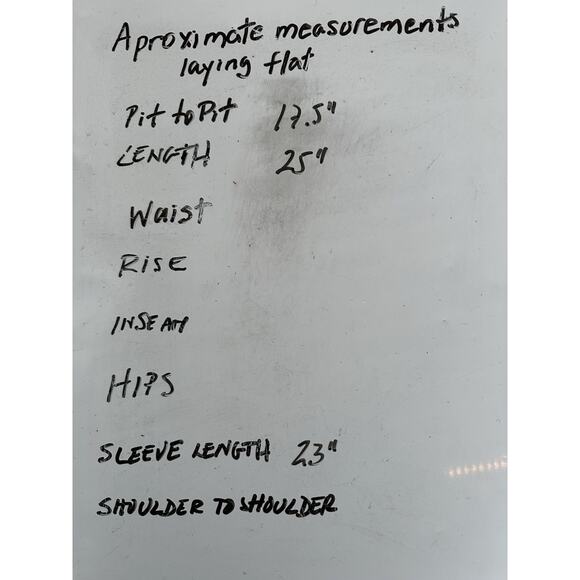 Aproximate measurements
laying flat
Pit to Pit 17.5"
LENGTH 25"
Waist
RISE
INSEAM
HIPS
SLEEVE LENGTH 23"
SHOULDER TO SHOULDER